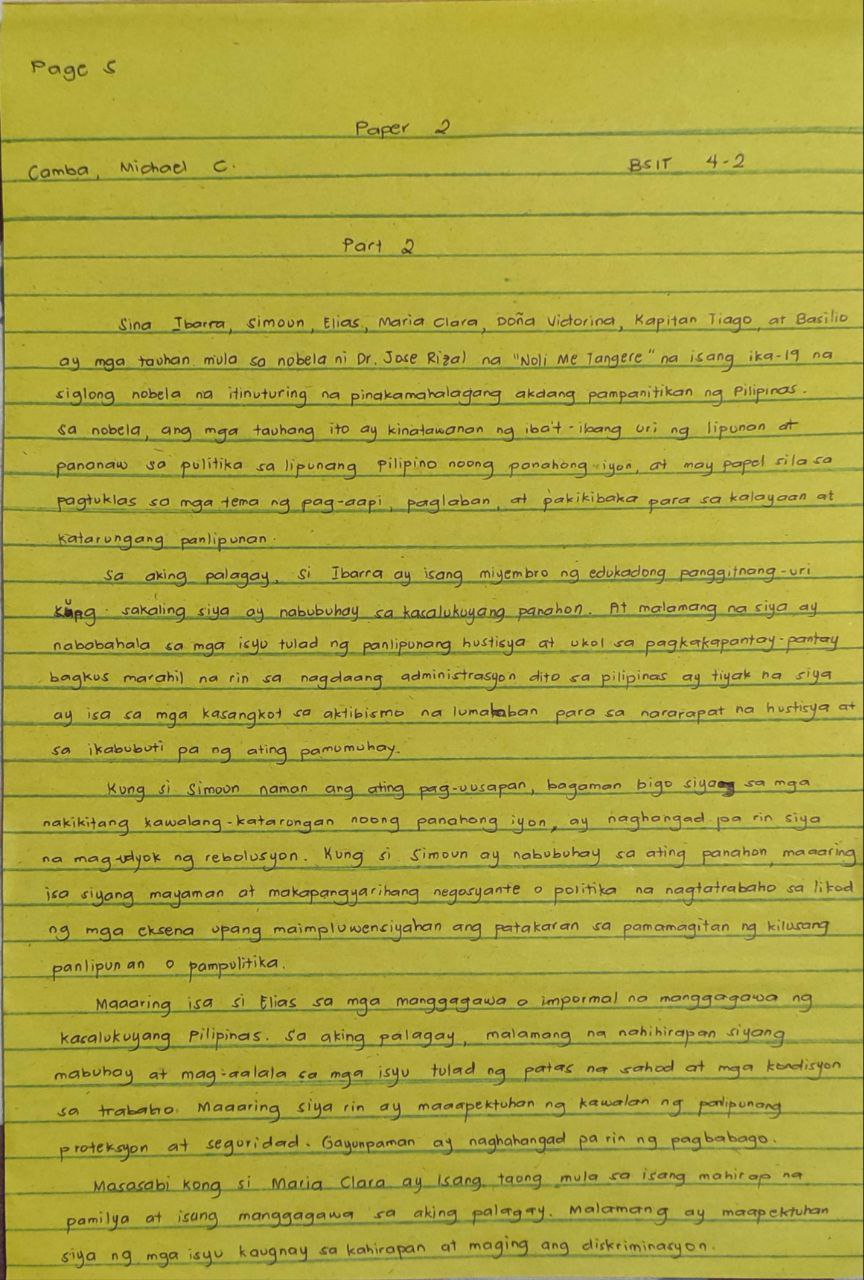 Page 5
Paper 2
Camba, Michael C. BSIT 4-2
Part 2
Sina Ibarra, Simoun, Elias, Maria Clara, Doña Victorina, Kapitan Tiago, at Basilio
ay mga tauhan mula sa nobela ni Dr. Jose Rizal na "Noli Me Tangere" na isang ika-19 na
siglong nobela na itinuturing na pinakamahalagang akdang pampanitikan ng Pilipinas.
Sa nobela, ang mga tauhang ito ay kinatawanan ng iba't-ibang uri ng lipunan at
pananaw sa pulitika sa lipunang Pilipino noong panahong iyon, at may papel sila sa
pagtuklas sa mga tema ng pag-aapi, paglaban, at pakikibaka para sa kalayaan at
katarungang panlipunan.
Sa aking palagay, si Ibarra ay isang miyembro ng edukadong panggitnang-uri
kung sakaling siya ay nabubuhay sa kasalukuyang panahon. At malamang na siya ay
nababahala sa mga isyu tulad ng panlipunang hustisya at ukol sa pagkakapantay-pantay
bagkus marahil na rin sa nagdaang administrasyon dito sa pilipinas ay tiyak na siya
ay isa sa mga kasangkot sa aktibismo na lumalaban para sa nararapat na hustisya at
sa ikabubuti pa ng ating pamumuhay.
Kung si Simoun naman ang ating pag-uusapan, bagaman bigo siya sa mga
nakikitang kawalang-katarongan noong panahong iyon, ay naghangad pa rin siya
na mag-udyok ng rebolusyon. Kung si Simoun ay nabubuhay sa ating panahon, maaaring
isa siyang mayaman at makapangyarihang negosyante o politika na nagtatrabaho sa likod
ng mga eksena upang maimpluwensiyahan ang patakaran sa pamamagitan ng kilusang
panlipunan o pampulitika.
Maaaring isa si Elias sa mga manggagawa o impormal na manggagawa ng
kasalukuyang Pilipinas. Sa aking palagay, malamang na nahihirapan siyang
mabuhay at mag-aalala sa mga isyu tulad ng patas na sahod at mga kondisyon
sa trabaho. Maaaring siya rin ay maaapektuhan ng kawalan ng panlipunang
proteksyon at seguridad. Gayunpaman ay naghahangad pa rin ng pagbabago.
Masasabi kong si Maria Clara ay Isang taong mula sa isang mahirap na
pamilya at isang manggagawa sa aking palagay. Malamang ay maapektuhan
siya ng mga isyu kaugnay sa kahirapan at maging ang diskriminasyon.